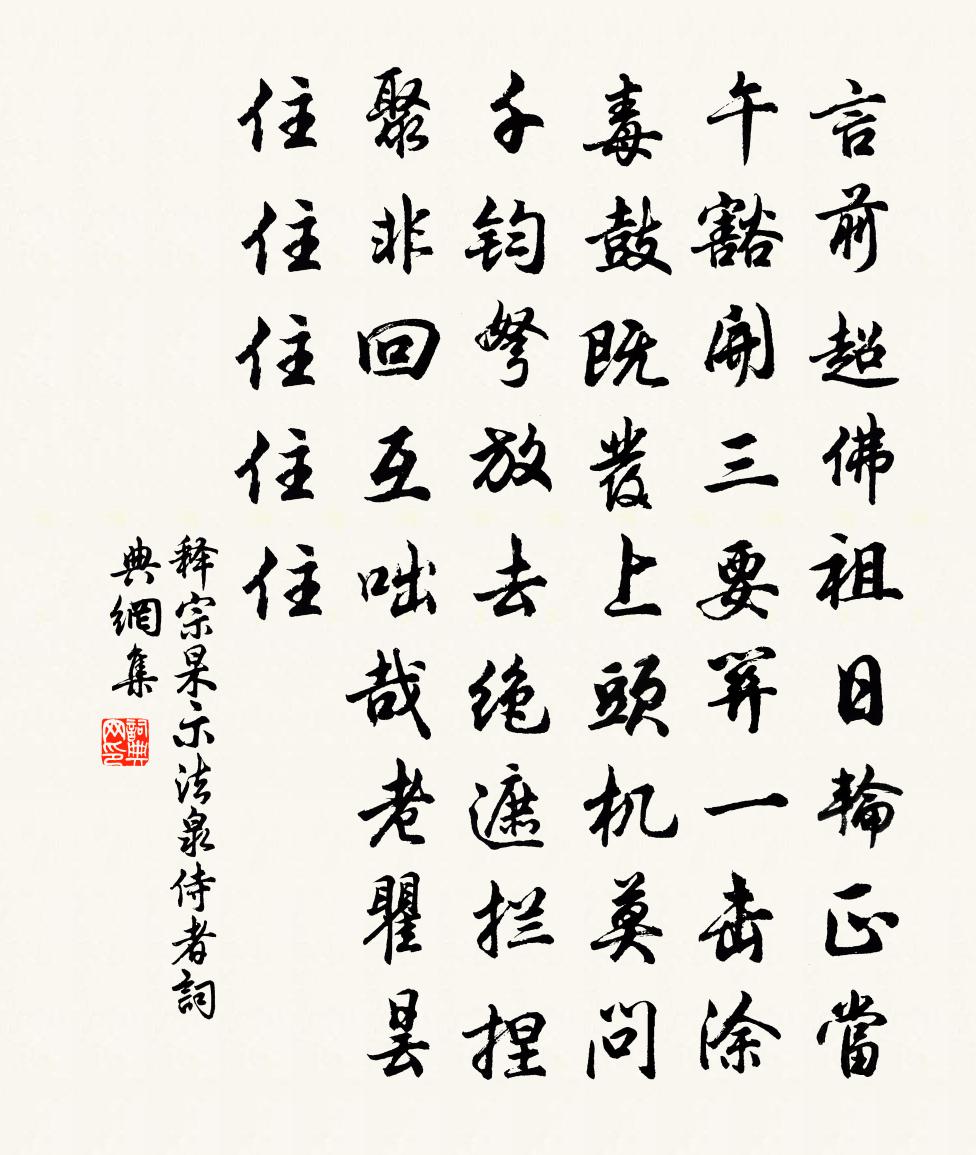 言前超佛祖日輪正當
午豁開三要关一击涂
毒鼓既發上頭机莫問
千鈞弩放去絶遮拦捏
聚非回互咄哉老瞿昙
住住住住住
释宗杲示法泉侍者詞
典網集
詞典
网印